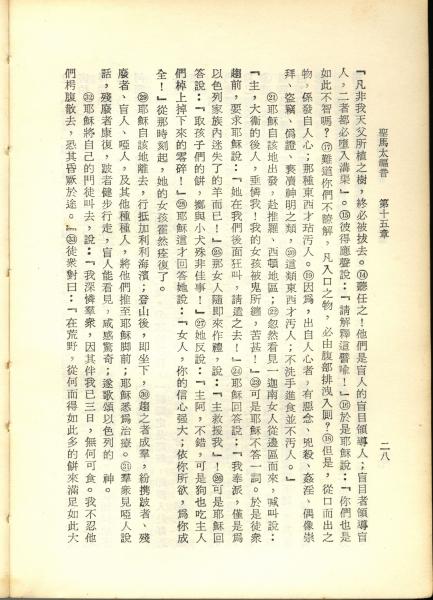 聖馬太福音　第十五章
二八
『凡非我天父所植之樹，終必被拔去。⑭聽任之！他們是盲人的盲目領導人；盲目者領導盲
人，二者都必墮入溝渠』。⑮彼得應聲說：『請解釋這譬喻！』⑯於是耶穌說：『你們也是
如此不智嗎？⑰難道你們不諒解，凡入口之物，必由腹部排洩入厠？⑱但是，從口而出之
物，係發自人心；那種東西才玷汚人。⑲因爲，出自人心者，有惡念、兇殺、姦淫、偶像崇
拜、盜竊、僞證、褻瀆神明之類，⑳這類東西才汚人；不洗手進食並不汚人。』
㉑耶穌自該地出發，赴推羅、西頓地區；㉒忽然看見一迦南女人從邊區而來，喊叫說：
『主，大衞的後人，垂憐我！我的女孩被鬼所纏，苦甚！』㉓可是耶穌不答一詞。於是徒衆
趨前，要求耶穌說：『她在我們後面狂叫，請遣之去！』㉔耶穌回答說：『我奉派，僅是爲
以色列家族內迷失了的羊而已！』㉕那女人隨即來作禮，說：『主救援我！』㉖可是耶穌回
答說：『取孩子們的餅，擲與小犬殊非佳事！』㉗她反說：『主阿，不錯，可是狗也吃主人
們棹上掉下來的零碎！』㉘耶穌這才回答她說：『女人，你的信心强大；依你所欲，爲你成
全！』從那時刻起，她的女孩霍然痊復了。
㉙耶穌自該地離去，行抵加利利海濱；登山後，即坐下，㉚趨之者成羣，紛携跛者、殘
廢者、盲人、啞人，及其他種種人，將他們推至耶穌脚前；耶穌悉爲治療。㉛羣衆見啞人說
話，殘廢者康復，跛者健步行走，盲人能看見，咸感驚奇；遂歌頌以色列的　神。
㉜耶穌將自己的門徒叫去，說：『我深憐羣衆，因其伴我已三日，無何可食。我不忍他
們枵腹散去，恐其昏厥於途。』㉝徒衆對曰：『在荒野，從何而得如此多的餅來滿足如此大